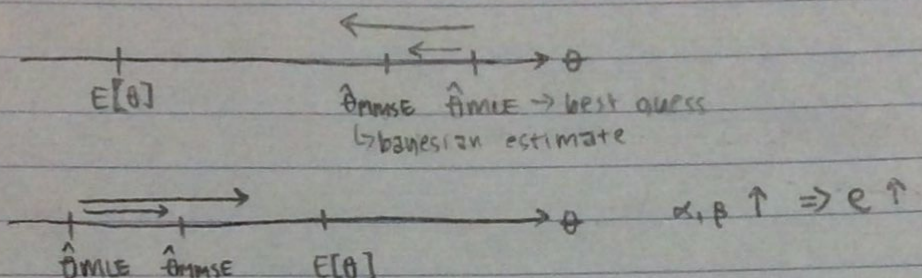 θ
E[θ] θ̂MMSE θ̂MLE → best guess
↳ bayesian estimate
θ α, β ↑ ⇒ e ↑
θ̂MLE θ̂MMSE E[θ]